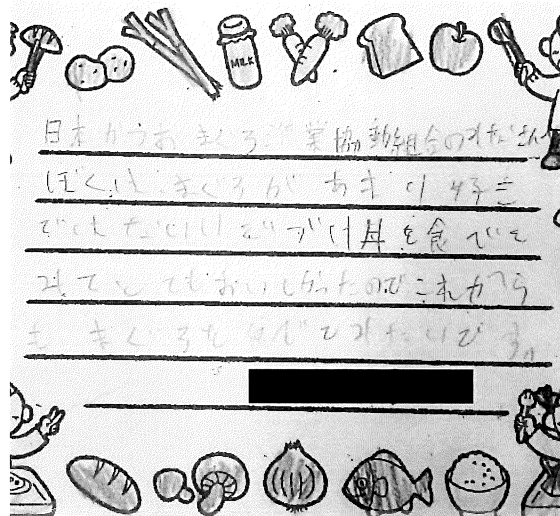 MILK
日本かつおまぐろ業協動組合のみなさんへ
ぼくはまぐろがあまり好き
ではないけどづけ丼を食べて
みてとてもおいしかったのでこれから
もまぐろを食べてみたいです。